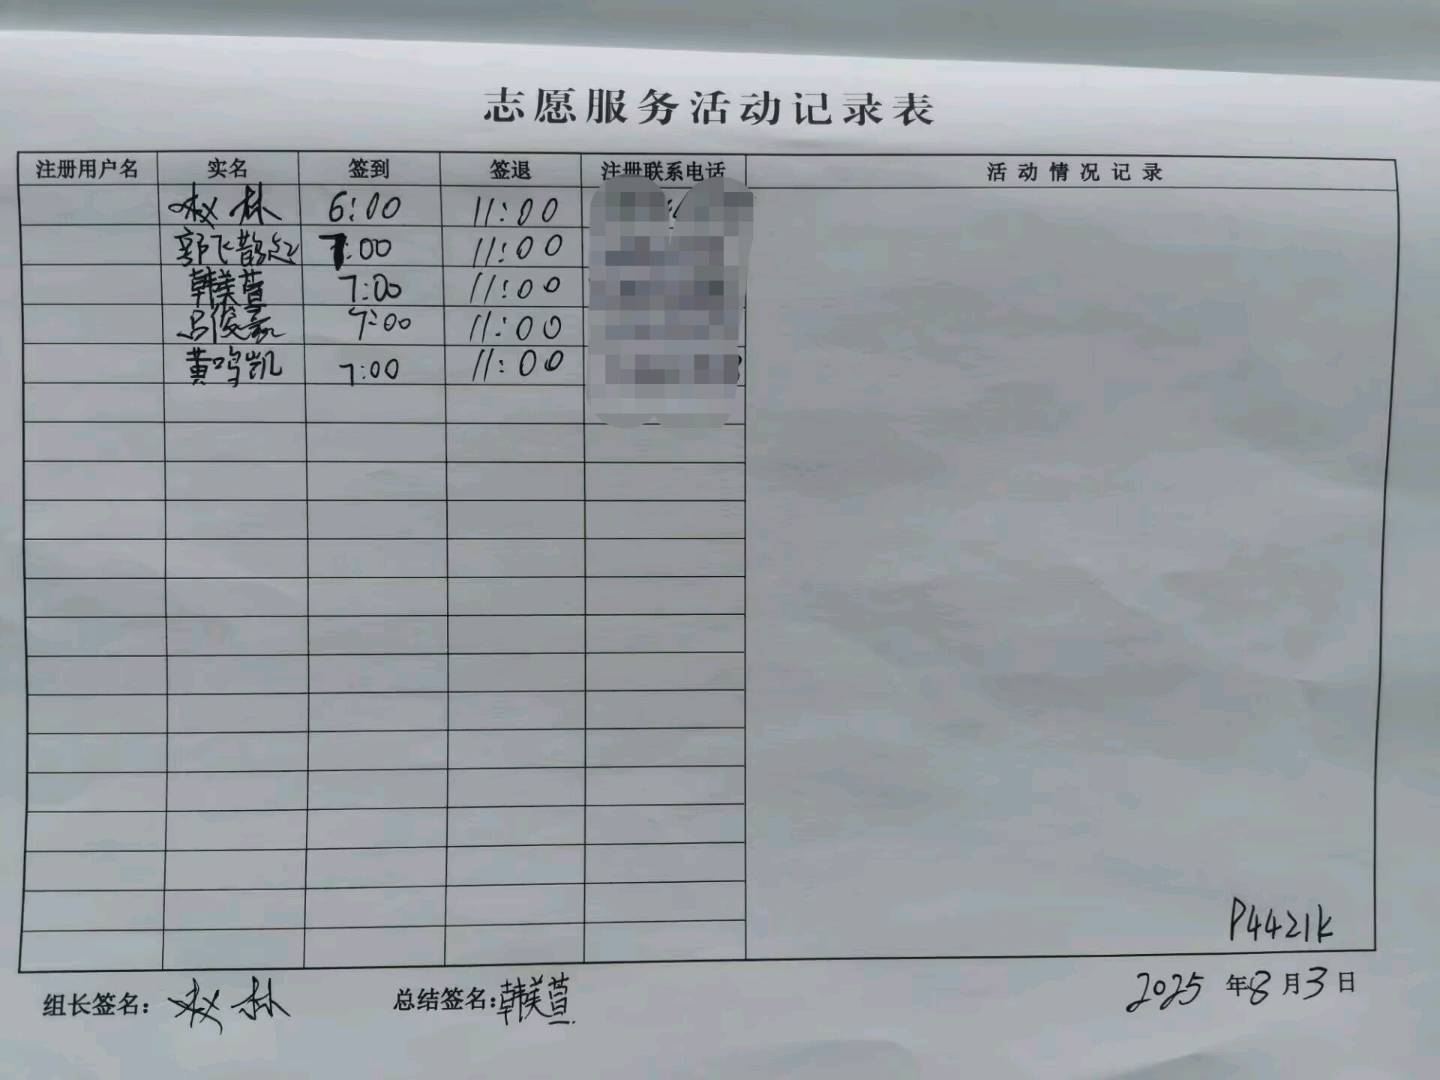 志愿服务活动记录表
注册用户名 实名 签到 签退 注册联系电话 活动情况记录
赵林 6:00 11:00
郭飞 7:00 11:00
韩美萱 7:00 11:00
吕俊豪 7:00 11:00
黄鸣凯 7:00 11:00
P4421k
组长签名: 赵林 总结签名: 韩美萱 2025年8月3日